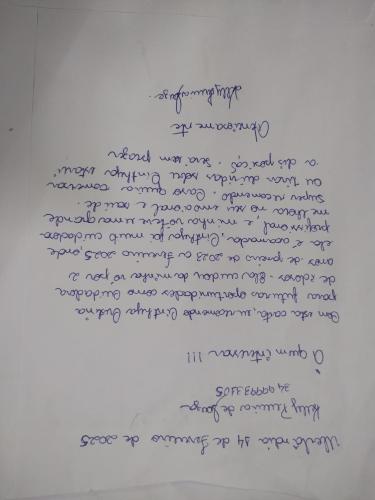 Uberlândia 14 de Fevereiro de 2025
Kelly Pereira de Souza
34 99993 3105
À quem interessar !!!
Com esta carta, eu recomendo Cinthya
para futuras oportunidades como Cuidadora
de idosos. Ela cuidou da minha vó por 2
anos de janeiro de 2023 a Fevereiro 2025, onde
ela é acamada. Cinthya foi muito cuidadosa
profissional, e minha vó teve uma grande
melhora no seu emocional e saúde.
Super recomendo. Caso queira conversar
ou tirar dúvidas sobre Cinthya estou
a disposição. Será um prazer
Atenciosamente